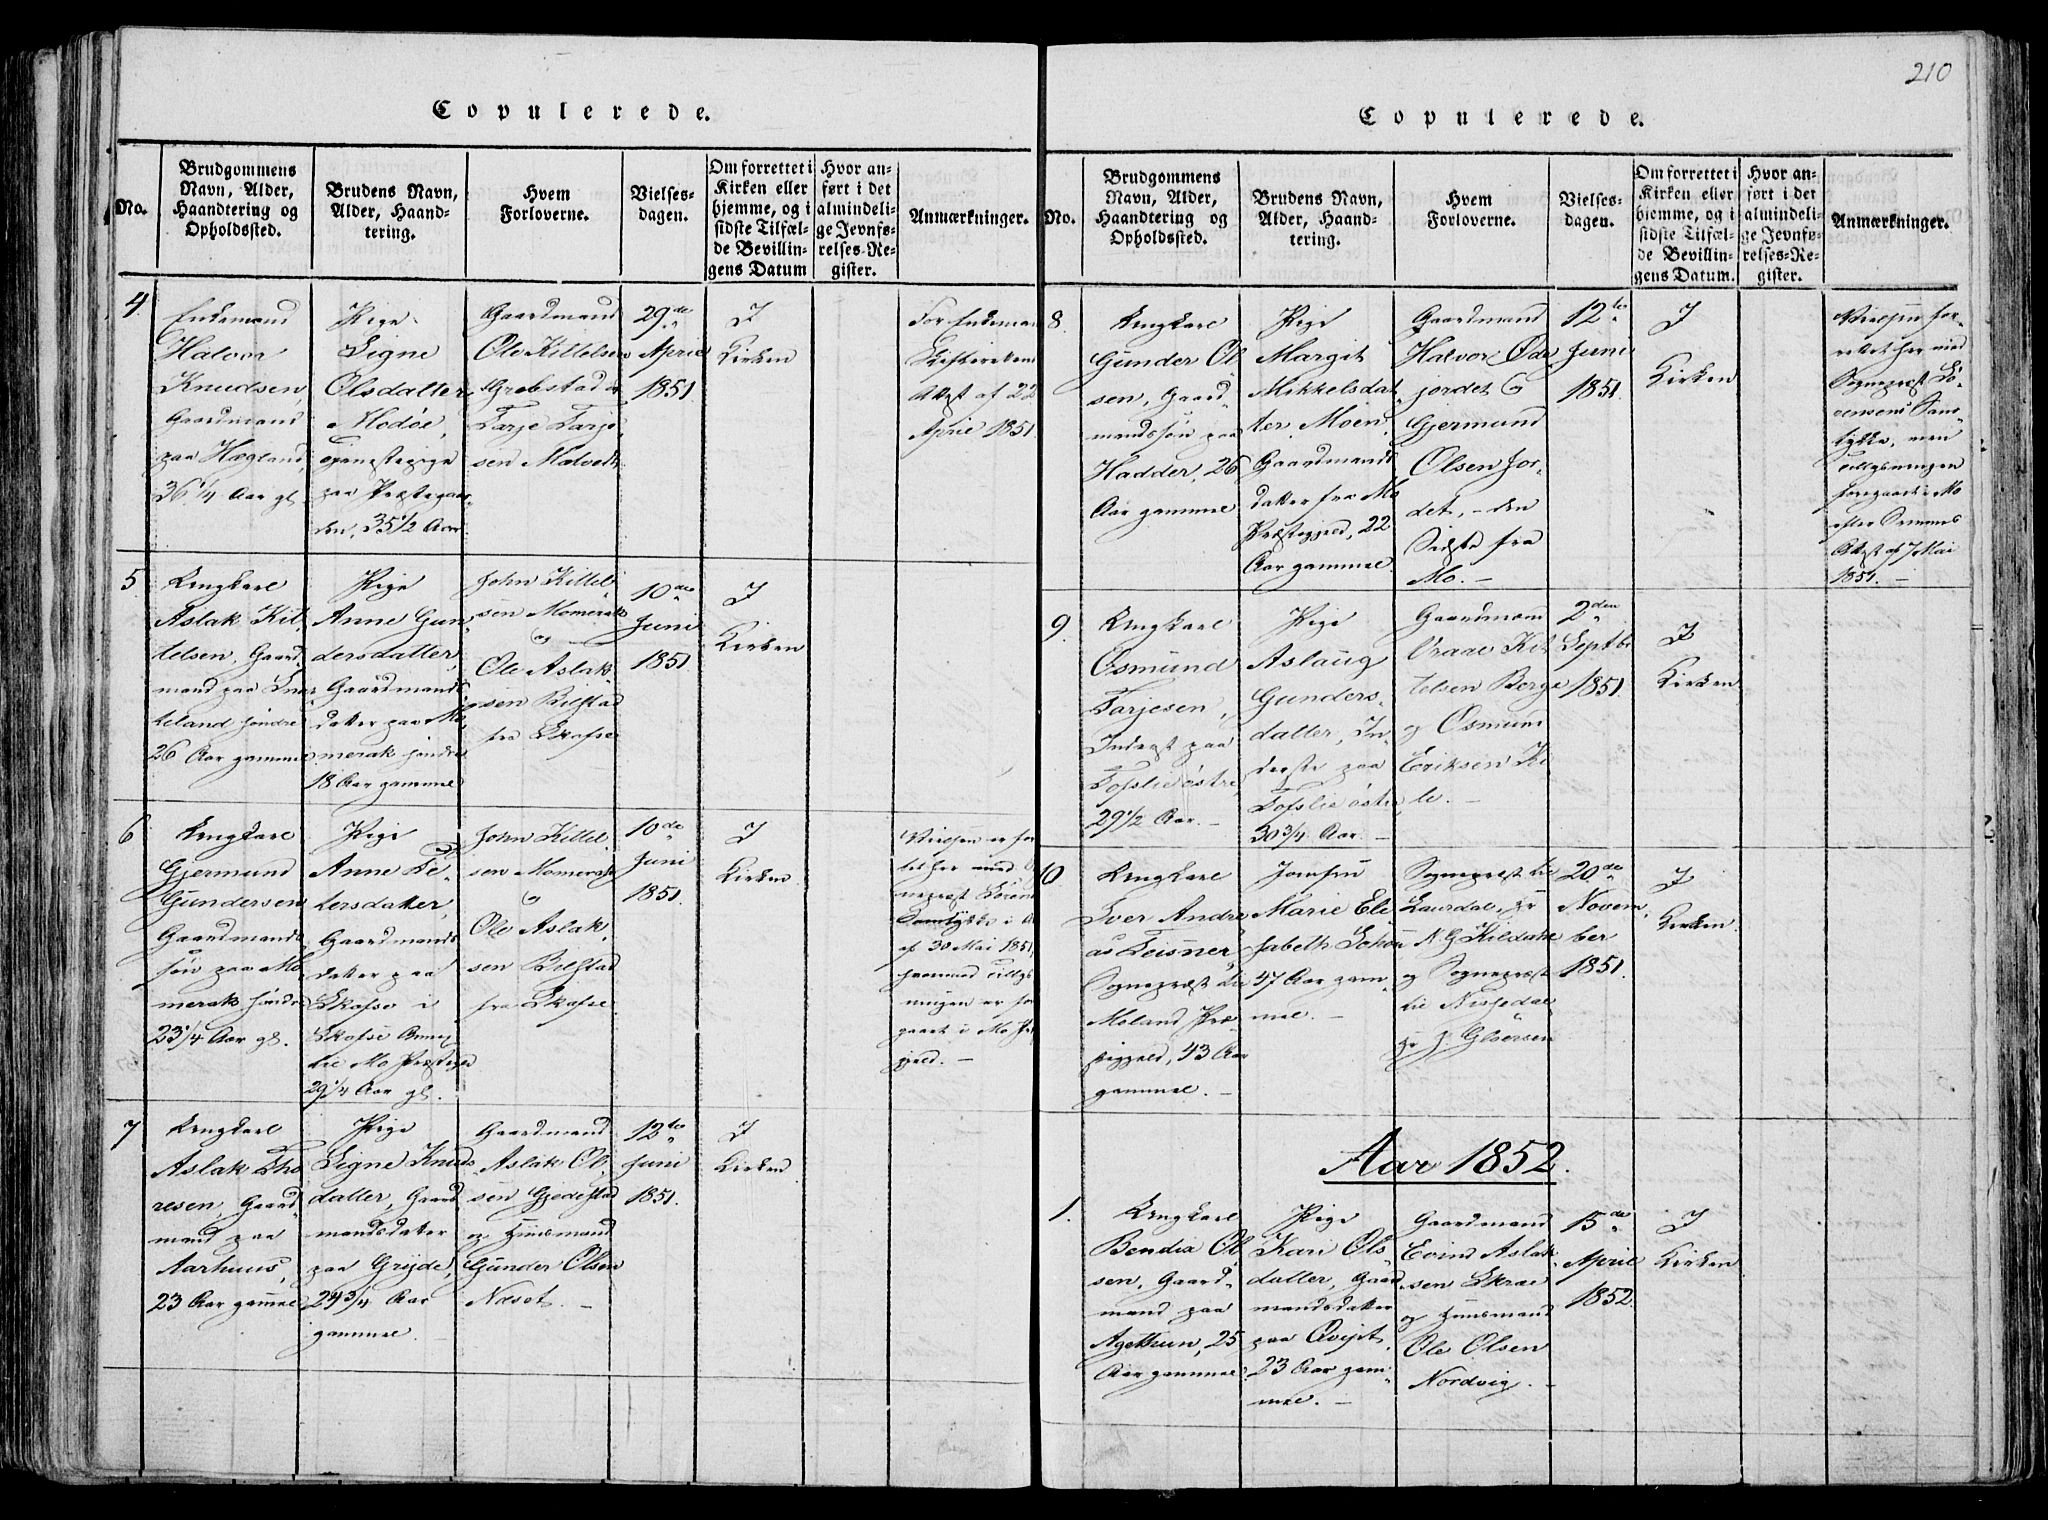 210
Copulerede.
No.
Brudgommens
Navn, Alder,
Haandtering og
Opholdssted.
Brudens Navn,
Alder, Haand-
tering.
Hvem
Forloverne.
Vielses-
dagen.
Om forrettet i
Kirken eller
hjemme, og i
sidste Tilfæl-
de Bevillin-
gens Datum
Hvor an-
ført i det
almindeli-
ge Jevnfø-
relses-Re-
gister.
Anmærkninger.
4
Enkemand
Halvor
Knudsen,
Gaardmand
paa Hægland,
36 1/4 Aar gl.
Pige
Signe
Olsdatter
Modøe,
Tjenestepige
paa Præstegaar-
den, 35 1/2 Aar
Gaardmand
Ole Kittelsen
Grebstad og
Tarje Tarje
sen Malvedt
29de
April
1851
I
Kirken
For Enkeman
Skifteretten
Attest af 22
April 1851
5
Ungkarl
Aslak Kit-
telsen, Gaard
mand paa
teland søndre
26 Aar gammel
Pige
Anne Gun-
dersdatter,
Gaardmands
datter paa Mo
merak søndre
18 Aar gammel
John Kittel
sen Momerak
og
Ole Aslak
sen Bilstad
fra Skafse
10de
Juni
1851.
I
Kirken
6
Ungkarl
Gjermund
Gundersen
Gaardmands
søn paa Mo-
merak søndre
23 1/4 Aar gl.
Pige
Anne Pe-
tersdatter,
Gaardmands
datter paa
Skafse i
Skafse Annex
til Mo Præstegj
29 1/4 Aar gl.
John Kittel
sen Momerak
og
Ole Aslak
sen Bilstad
fra Skafse
10de
Juni
1851.
I
Kirken
Vielsen er for
tet her med
nepræst
Samtykke i
af 30 Mai 1851
hvormed Tillys
ningen er for
gaaet i Mo Præ
gjeld. —
7
Ungkarl
Aslak Tho
resen, Gaard
mand paa
Aarhuus,
23 Aar gammel
Pige
Signe Knuds
datter, Gaard
mandsdatter
paa Grijde,
24 3/4 Aar
gammel.
Gaardmand
Aslak Ol-
sen Gjedestad
og Huusmand
Gunder Olsen
Næset. —
12te
Juni
1851.
I
Kirken
Copulerede.
No.
Brudgommens
Navn, Alder,
Haandtering og
Opholdssted.
Brudens Navn,
Alder, Haand-
tering.
Hvem
Forloverne.
Vielses-
dagen.
Om forrettet i
Kirken eller
hjemme, og i
sidste Tilfæl-
de Bevillin-
gens Datum.
Hvor an-
ført i det
almindeli-
ge Jevnfø-
relses-Re-
gister.
Anmærkninger.
8.
Ungkarl
Gunder Ol
sen, Gaard
mandssøn paa
Hadder, 26
Aar gammel
Pige
Margit
Mikkelsdat
ter Moen,
Gaardmands
datter fra Mo
Præstegjeld, 22
Aar gammel.
Gaardmand
Halvor Øde
jordet og
Gjermund
Olsen Jor-
det, - den
Sidste fra
Mo. —
12te
Juni
1851.
I
Kirken
Vielsen for-
rettet her med
Sognepræst Sø-
rensens Sam-
tykke, men
Tillysningen
foregaaet i Mo
efter Sammes
Attest af 7 Mai
1851. —
9.
Ungkarl
Osmund
Tarjesen,
Inderst paa
Tofslie østre
29 1/2 Aar. —
Pige
Aslaug
Gunders-
datter, In-
derste paa
Tofslie østre
30 3/4 Aar. —
Gaardmænd
Vraal Kit
telsen Berge
og Osmund
Eriksen Ki
le. —
2den
Septbr
1851
I
Kirken
10
Ungkarl
Iver Andre
as Leisner
Sognepræst til
Moland Præ
stegjeld, 43 Aar
gammel. —
Jomfru
Marie Ele
sabeth Schøn
47 Aar gam-
mel. —
Sognepræst til
Laurdal, Hr
N. G. Kildahl
og Sognepræst
til Nissedal
Hr J. Gloersen
20de
Novem-
ber
1851.
I
Kirken.
Aar 1852.
1.
Ungkarl
Bendix Ol
sen, Gaard-
mand paa
Agethun, 25
Aar gammel
Pige
Kari Ols
datter, Gaard
mandsdatter
paa Qvijst,
23 Aar gam-
mel. —
Gaardmand
Evind Aslak
sen Skrae
og Huusmand
Ole Olsen
Nordvig. —
15de
April
1852.
I
Kirken